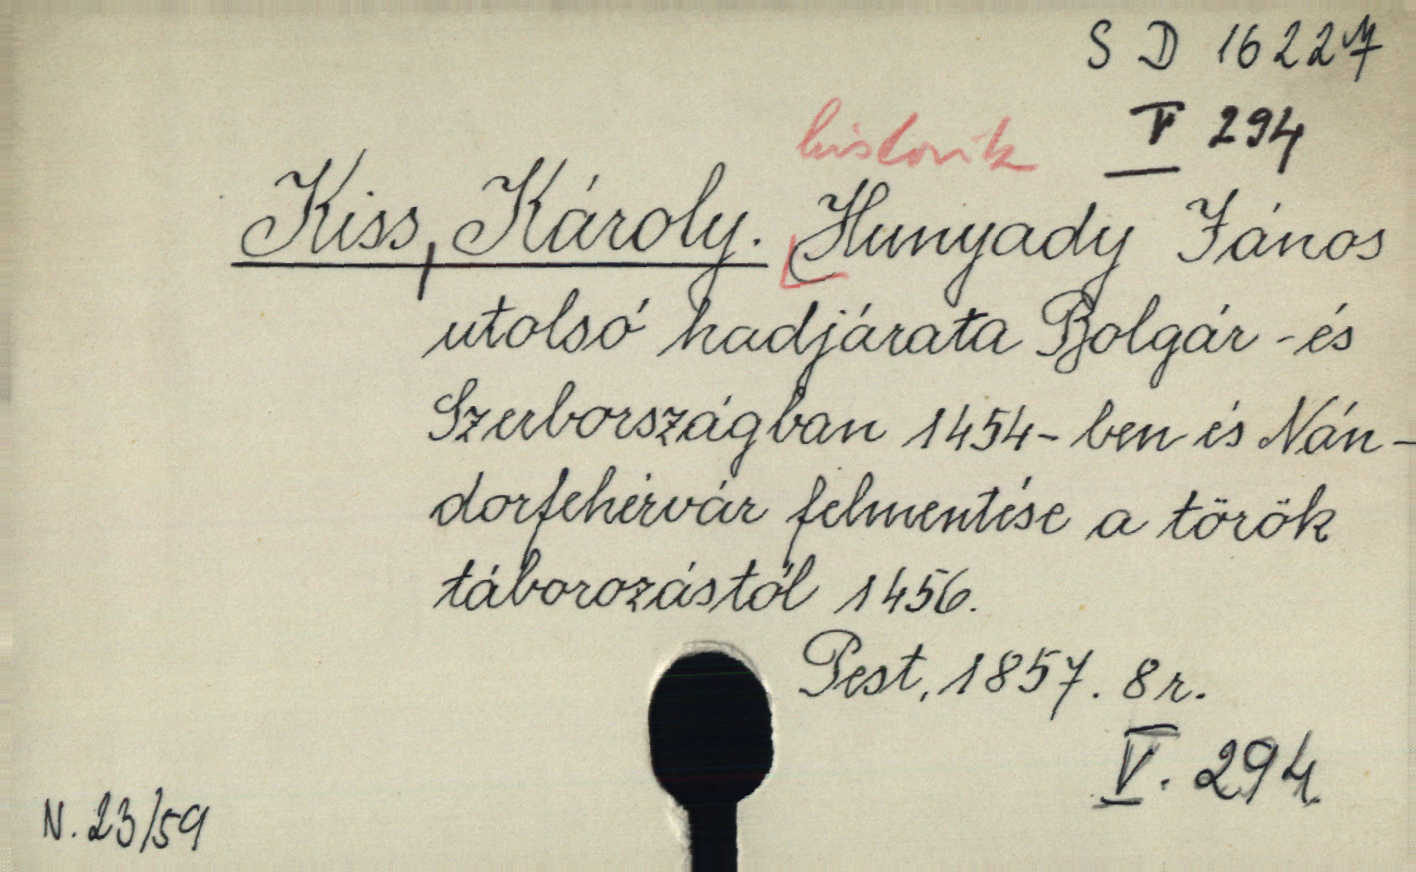 S D 16227
V 294
historik
Kiss, Károly. Hunyady János
utolsó hadjárata Bolgár - és
Szerbországban 1454-ben és Nán-
dorfehérvár felmentése a török
táborozástól 1456.
Pest, 1857. 8r.
V. 294.
N. 23/59